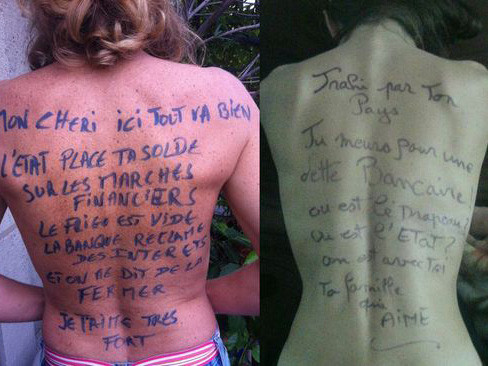 MON CHERI ICI TOUT VA BIEN
L'ETAT PLACE TA SOLDE
SUR LES MARCHES
FINANCIERS
LE FRIGO EST VIDE
LA BANQUE RECLAME
DES INTERETS
ET ON ME DIT DE LA
FERMER
JE T'AIME TRES
FORT
Trahi par Ton
Pays
Tu meurs pour une
dette Bancaire!
ou est le Drapeau?
ou est l'ETAT?
on est avec toi
Ta famille
qui
AIME